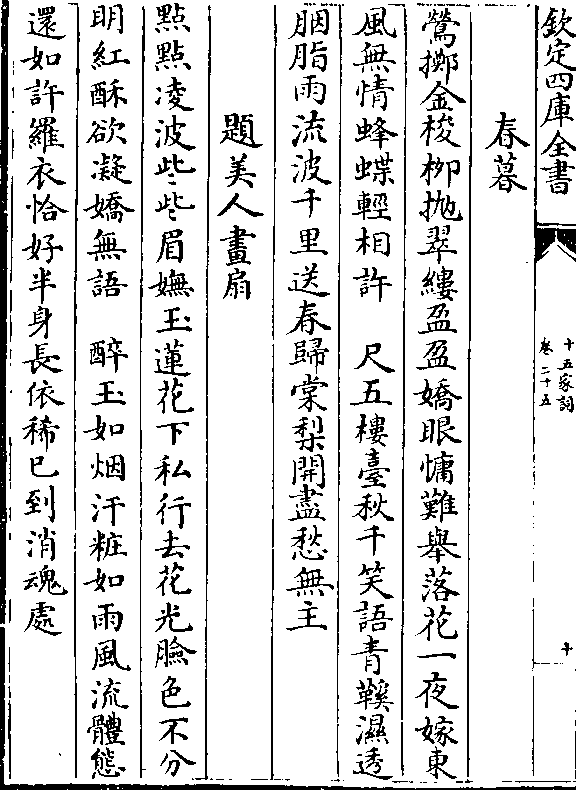 欽定四庫全書
十五家詞
卷二十五
十
春暮
鶯擲金梭柳抛翠縷盈盈嬌眼慵難舉落花一夜嫁東
風無情蜂蝶輕相許　尺五樓臺秋千笑語青鞵濕透
胭脂雨流波千里送春歸棠梨開盡愁無主
題美人畫扇
點點凌波些些眉嫵玉蓮花下私行去花光臉色不分
明紅酥欲凝嬌無語　醉玉如烟汗粧如雨風流體態
還如許羅衣恰好半身長依稀已到消魂處